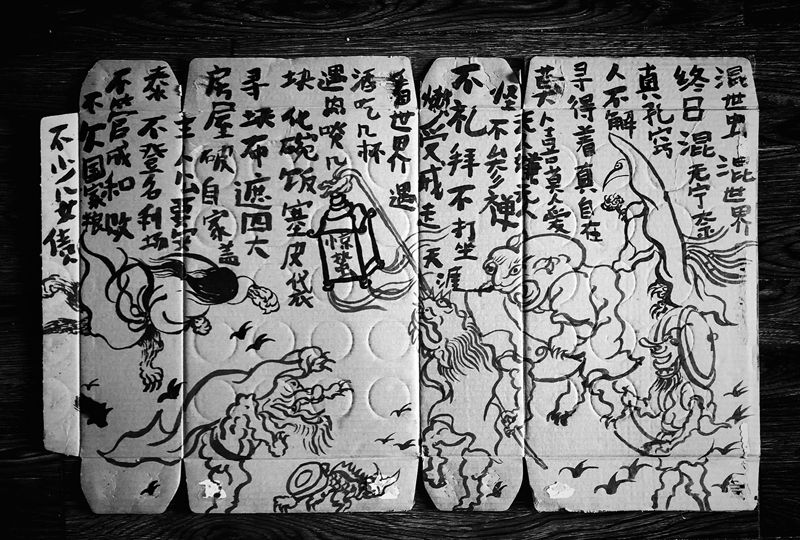 混世虫 混世界
终日混无宁奈
真孔窍
人不解
寻得着真自在
莫人喜莫人爱
无人嫌无人
怪不参禅
不礼拜不打坐
懒受戒走天涯
着世界遇
酒吃几杯
遇肉啖几
块化碗饭塞皮袋
寻块布遮四大
房屋破自家盖
主人公要安
泰不登名利场
不管成和败
不欠国家粮
不少儿女债
惊蛰